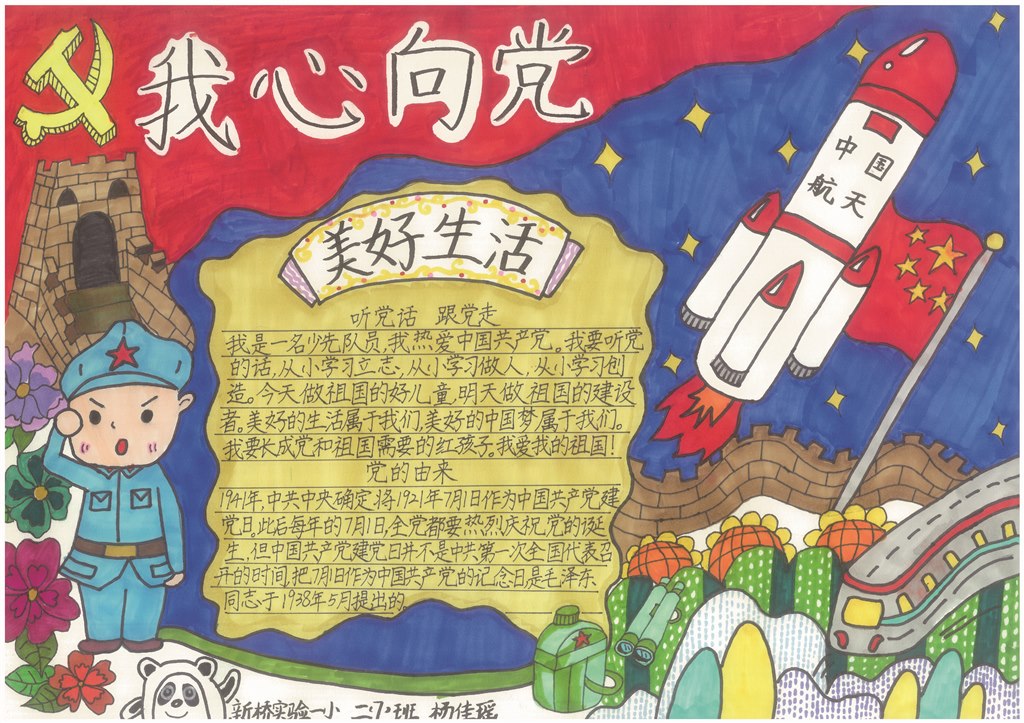 我心向党
中国
航天
美好生活
听党话 跟党走
我是一名少先队员,我热爱中国共产党。我要听党
的话,从小学习立志,从小学习做人,从小学习创
造。今天做祖国的好儿童,明天做祖国的建设
者。美好的生活属于我们,美好的中国梦属于我们。
我要长成党和祖国需要的红孩子。我爱我的祖国!
党的由来
1941年,中共中央确定,将1921年7月1日作为中国共产党建
党日。此后每年的7月1日,全党都要热烈庆祝党的诞
生,但中国共产党建党日并不是中共第一次全国代表召
开的时间,把7月1日作为中国共产党的记念日,是毛泽东
同志于1938年5月提出的。
新桥实验一小 二(7)班 杨佳瑶